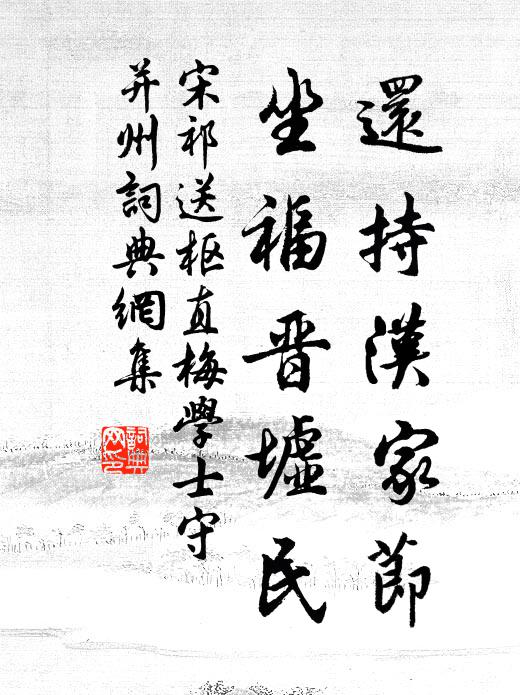 還持漢家節
坐福晋墟民
宋祁送枢直梅學士守
并州詞典網集